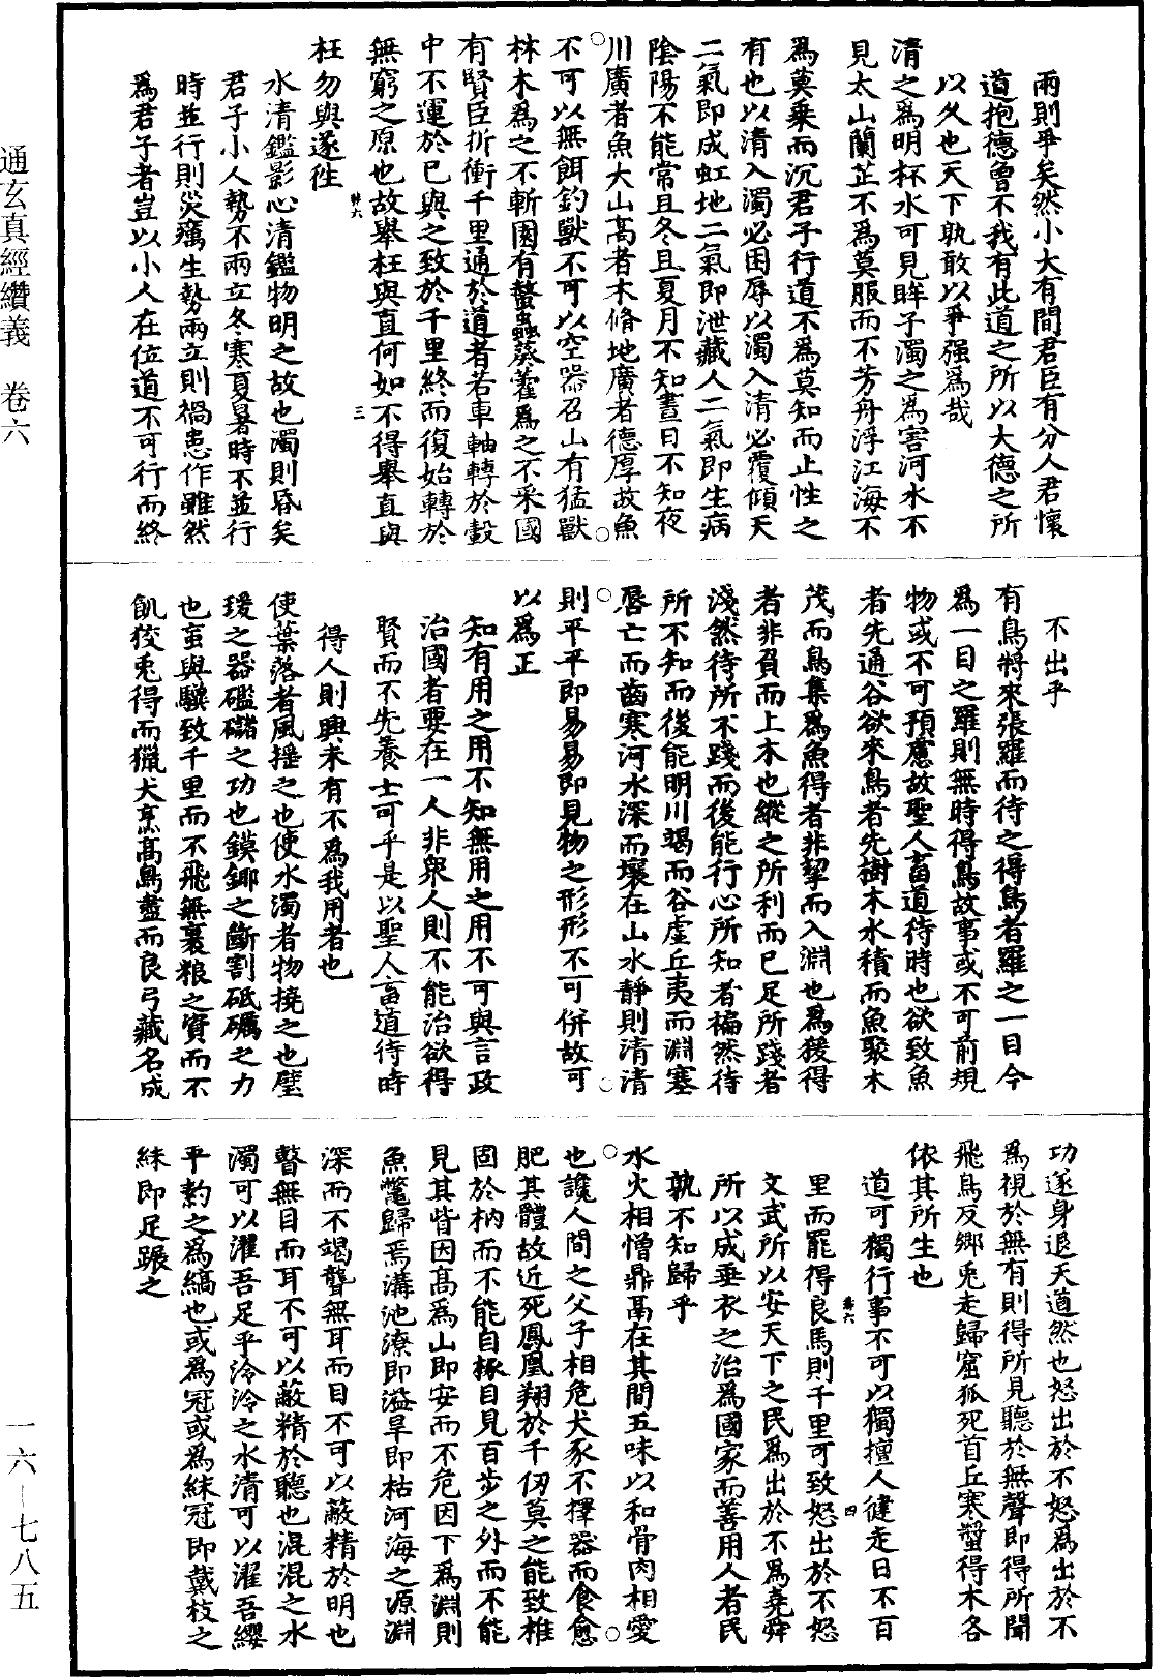 兩則爭矣然小大有間君臣有分人君懷
道抱德曾不我有此道之所以大德之所
以久也天下孰敢以爭强爲哉
清之爲明杯水可見眸子濁之爲害河水不
見太山蘭芷不爲莫服而不芳舟浮江海不
爲莫乗而沉君子行道不爲莫知而止性之
有也以清入濁必困辱以濁入清必覆傾天
二氣即成虹地二氣即泄藏人二氣即生病
陰陽不能常且冬且夏月不知晝日不知夜
川廣者魚大山髙者木脩地廣者德厚故魚
不可以無餌釣獸不可以空器召山有猛獸
林木爲之不斬園有螫蟲葵藿爲之不采國
有賢臣折衝千里通於道者若車軸轉於轂
中不運於己與之致於千里終而復始轉於
無窮之原也故舉枉與直何如不得舉直與
枉勿與遂徃
水清鑑影心清鑑物明之故也濁則昏矣
君子小人勢不兩立冬寒夏暑時不並行
時並行則災癘生勢兩立則禍患作雖然
爲君子者豈以小人在位道不可行而終
不出乎
有鳥將來張羅而待之得鳥者羅之一目今
爲一目之羅則無時得鳥故事或不可前規
物或不可預慮故聖人畜道待時也欲致魚
者先通谷欲來鳥者先樹木水積而魚聚木
茂而鳥集爲魚得者非挈而入淵也爲猨得
者非負而上木也縱之所利而已足所踐者
淺然待所不踐而後能行心所知者褊然待
所不知而後能明川竭而谷虛丘夷而淵塞
唇亡而齒寒河水深而壤在山水靜則清清
則平平即易易即見物之形形不可併故可
以爲正
知有用之用不知無用之用不可與言政
治國者要在一人非衆人則不能治欲得
賢而不先養士可乎是以聖人畜道待時
得人則興未有不爲我用者也
使葉落者風揺之也使水濁者物撓之也璧
瑗之器礛䃴之功也鏌鋣之斷割砥礪之力
也䖟與驥致千里而不飛無裹粮之資而不
飢狡兎得而獵犬烹髙鳥盡而良弓藏名成
功遂身退天道然也怒出於不怒爲出於不
爲視於無有則得所見聽於無聲即得所聞
飛鳥反鄉兎走歸窟狐死首丘寒螿得木各
依其所生也
道可獨行事不可以獨擅人徤走日不百
里而罷得良馬則千里可致怒出於不怒
文武所以安天下之民爲出於不爲堯舜
所以成垂衣之治爲國家而善用人者民
孰不知歸乎
水火相憎鼎鬲在其間五味以和骨肉相愛
也讒人間之父子相危犬豕不擇器而食愈
肥其體故近死鳳凰翔於千仞莫之能致椎
固於枘而不能自椓目見百步之外而不能
見其眥因髙爲山即安而不危因下爲淵則
魚鼈歸焉溝池潦即溢旱即枯河海之源淵
深而不竭聾無耳而目不可以蔽精於明也
瞽無目而耳不可以蔽精於聽也混混之水
濁可以濯吾足乎泠泠之水清可以濯吾纓
乎䊵之爲縞也或爲冠或爲絑冠即戴枝之
絑即足蹍之
通玄真經纘義 卷六
一六—七八五